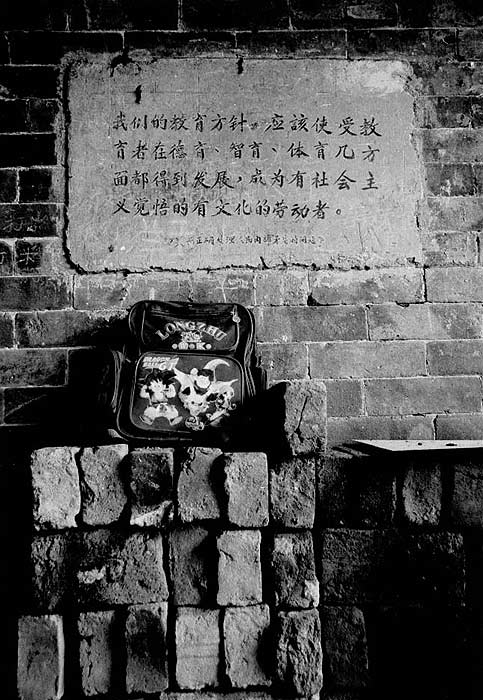 我们的教育方针。应該使受教
育者在德育、智育、体育几方
面都得到发展，成为有社会主
义覚悟的有文化的劳动者。
《关于正确处理人民内部矛盾的问题》
LONGZHU
DRAGON